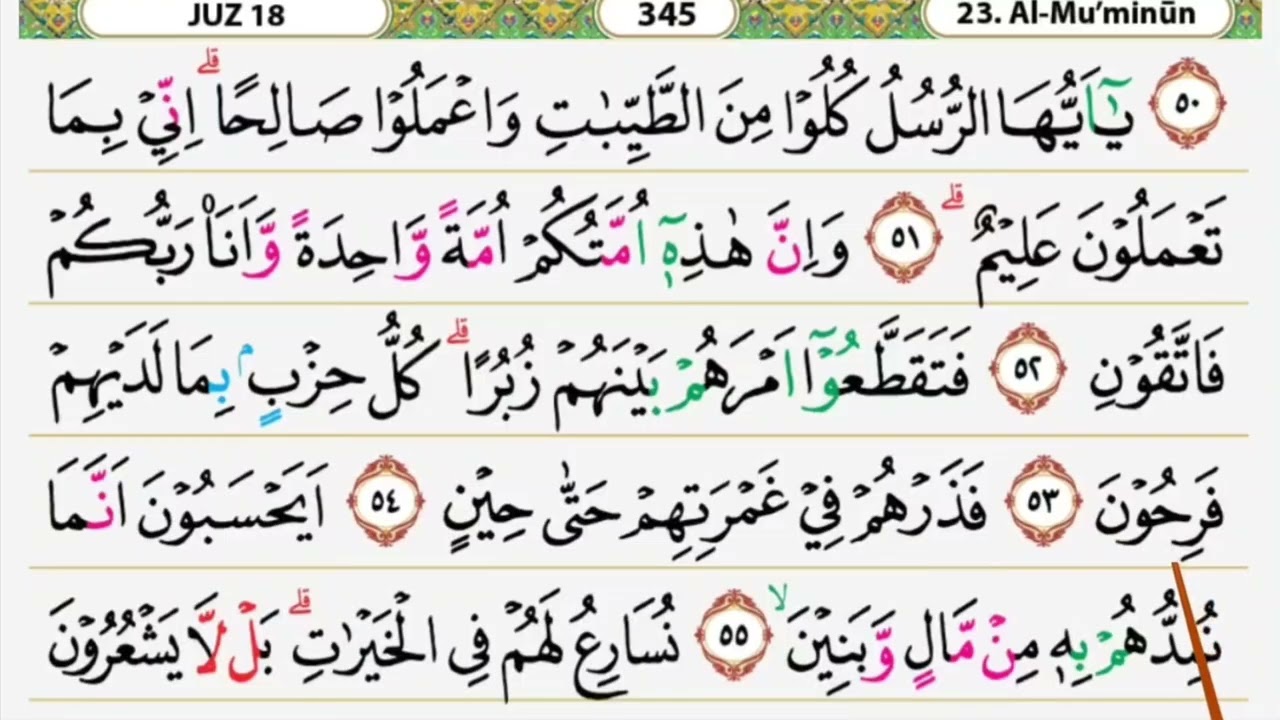 JUZ 18 345 23. Al-Mu’minūn
۝٥٠ يٰٓاَيُّهَا الرُّسُلُ كُلُوْا مِنَ الطَّيِّبٰتِ وَاعْمَلُوْا صَالِحًاۗ اِنِّيْ بِمَا
تَعْمَلُوْنَ عَلِيْمٌۗ ۝٥١ وَاِنَّ هٰذِهٖٓ اُمَّتُكُمْ اُمَّةً وَّاحِدَةً وَّاَنَا۠ رَبُّكُمْ
فَاتَّقُوْنِ ۝٥٢ فَتَقَطَّعُوْٓا اَمْرَهُمْ بَيْنَهُمْ زُبُرًاۗ كُلُّ حِزْبٍۢ بِمَا لَدَيْهِمْ
فَرِحُوْنَ ۝٥٣ فَذَرْهُمْ فِيْ غَمْرَتِهِمْ حَتّٰى حِيْنٍ ۝٥٤ اَيَحْسَبُوْنَ اَنَّمَا
نُمِدُّهُمْ بِهٖ مِنْ مَّالٍ وَّبَنِيْنَۙ ۝٥٥ نُسَارِعُ لَهُمْ فِى الْخَيْرٰتِۗ بَلْ لَّا يَشْعُرُوْنَ